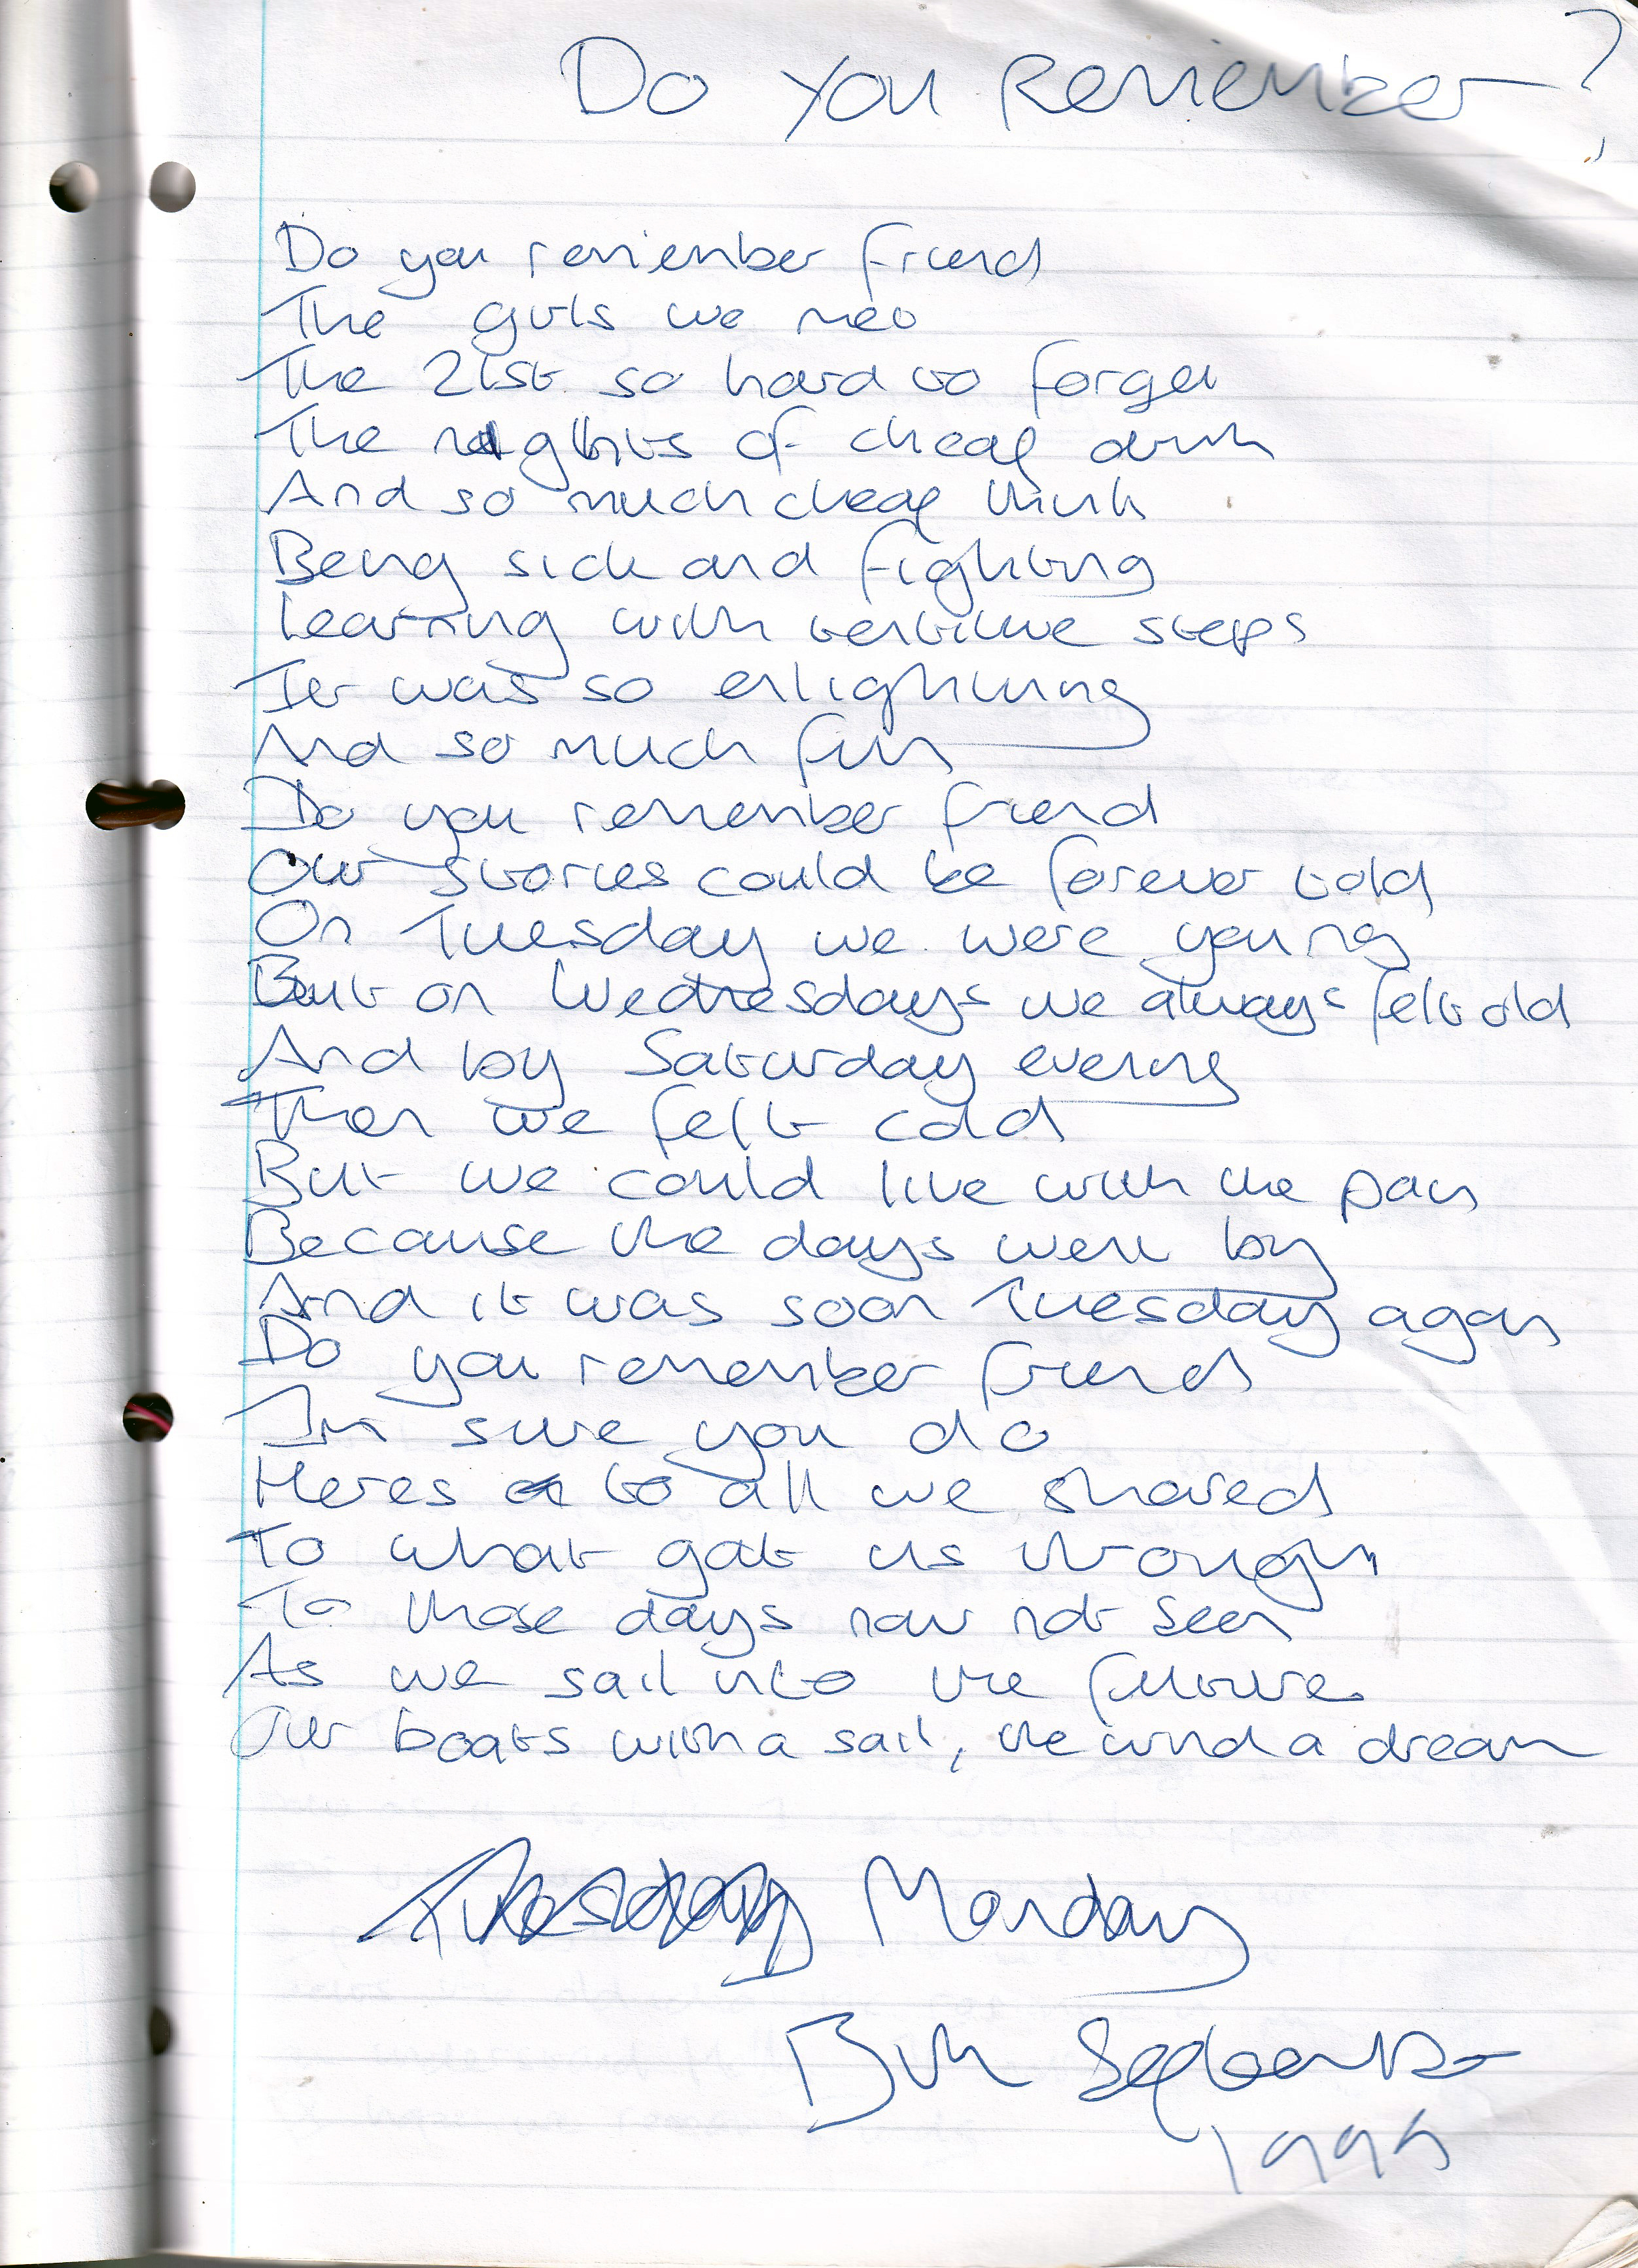 Do you Remember?
Do you remember friend
The girls we met
The 21st so hard to forget
The nights of cheap drink
And so much cheap think
Being sick and fighting
Learning with tentitive steps
It was so enlightning
And so much fun
Do you remember friend
Our stories could be forever told
On Tuesday we were young
But on Wednesdays we always felt old
And by Saturday evening
Then we felt cold
But we could live with the pain
Because the days went by
And it was soon Tuesday again
Do you remember friend
Im sure you do
Heres to all we shared
To what got us through
To those days now not seen
As we sail into the future
Our boats with a sail, the wind a dream
Tuesday Monday
September